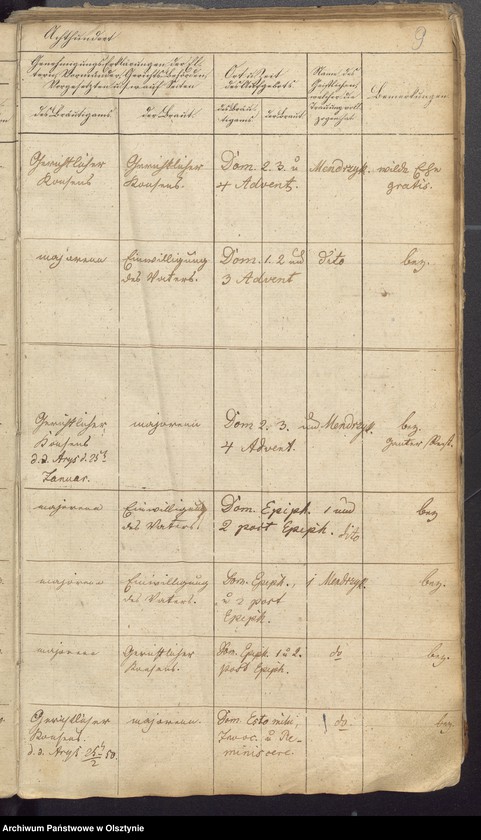 Achthundert
9
Genehmigungserklärungen der El-
tern, Vormünder, Gerichts Behörden,
Vorgesetzten u. s. w. auf Seiten
des Bräutigams.
der Braut.
Ort u. Zeit
des Aufgebots
des Bräu-
tigams
der Braut
Name des
Geistlichen,
welcher die
Trauung voll-
zogen hat
Bemerkungen
Gerichtlicher
Konsens
Gerichtlicher
Konsens.
Dom. 2. 3. u
4 Advent.
Mendrzyk.
wilde Ehe
gratis.
majorenn
Einwilligung
des Vaters.
Dom. 1. 2 und
3 Advent
dito
bez.
Gerichtlicher
Konsens
d. d. Arys d. 25t
Januar.
majorenn
Dom 2. 3. und
4 Advent.
Mendrzyk.
bez.
majorenn
Einwilligung
des Vaters.
Dom. Epiph. 1 und
2 post Epiph.
dito
bez
majorenn
Einwilligung
des Vaters.
Dom. Epiph., 1
u 2 post
Epiph.
Mendrzyk.
bez.
majorenn
Gerichtlicher
Konsens.
Dom. Epiph. 1 u 2.
post Epiph.
do
bez.
Gerichtlicher
Konsens.
d. d. Arys 25t/2 50.
majorenn.
Dom. Estomihi,
Invoc. u Re-
miniscere.
do.
bez
Archiwum Państwowe w Olsztynie